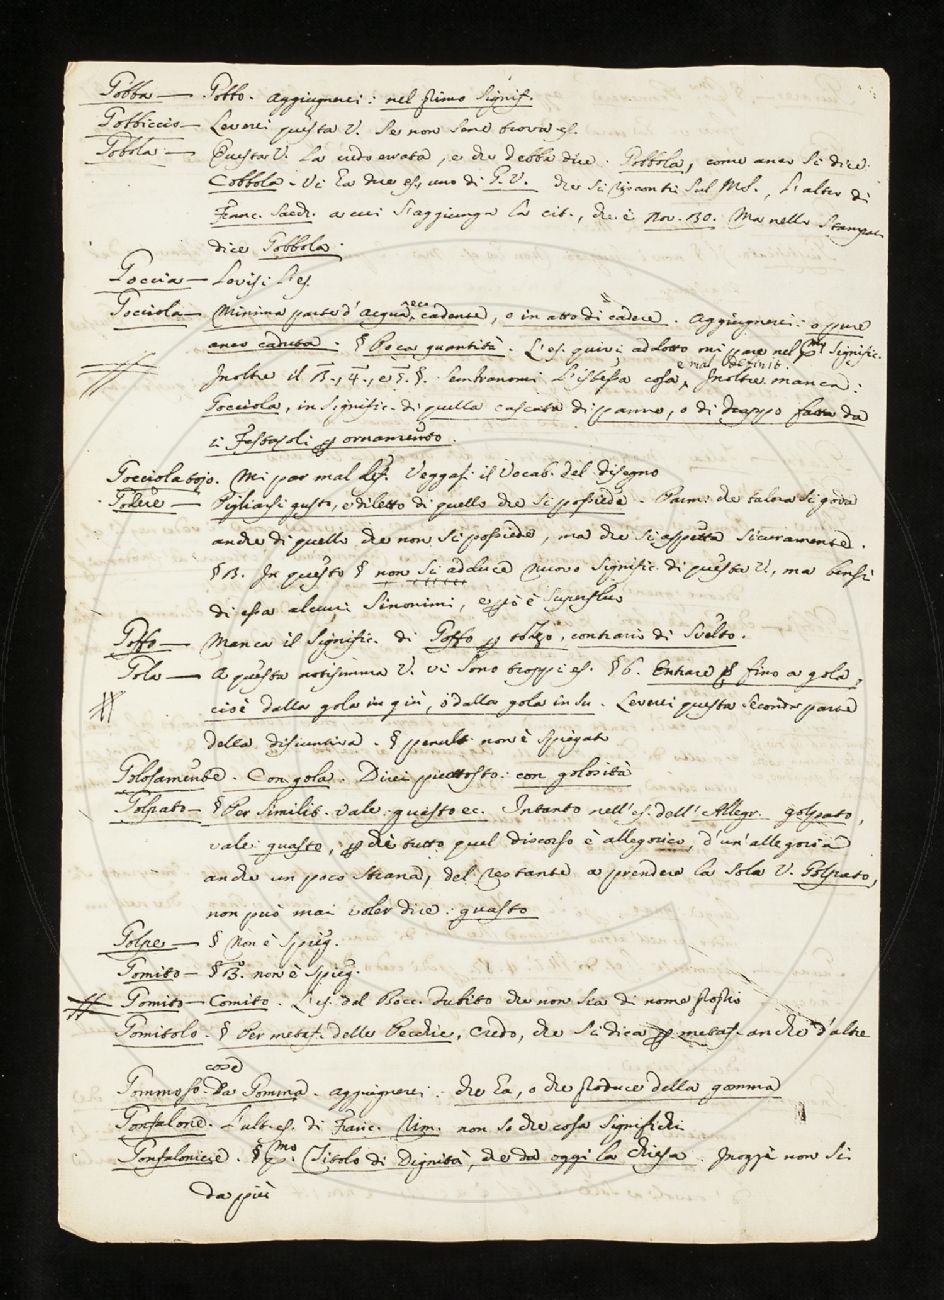 Gobba — Gobbo. Aggiugnerei: nel primo signif.
Gobbiccio — Leverei questa V. se non sene trova es.
Gobola — Questa V. la credo errata, e che debba dire: Gobbola, come anco si dice
Cobbola. Vi ha due es, uno di G.V. che si riscontri sul MS., l'altro di
Franc. Sacch. a cui s'aggiunga la cit., che è Nov. 130. Ma nello Stampat.
dice Gobbola.
Goccia — Levisi l'es.
Gocciola — Minima parte d'acqua, ec. cadente, o in atto di cadere. Aggiugnerei: oppure
anco caduta. § Poca quantità. L'es. quivi addotto mi pare nel pmo signific.
e mal definit.
Inoltre il §. 3., 4., e 5. §. sembranomi l'istessa cosa, Inoltre manca:
Gocciola, in signific. di quella cascata di panno, o di drappo fatta da
i Festajoli per ornamento.
Gocciolatojo. Mi par mal def. Veggasi il Vocab. del Disegno
Godere — Pigliarsi gusto, e diletto di quello che si possiede. Parmi che talora si goda
anche di quello che non si possiede, ma che si aspetta sicuramente.
§ 13. In questo § non si adduce nuovo signific. di questa V., ma bensì
di essa alcuni sinonimi, e però è superfluo
Goffo — Manca il signific. di Goffo per contrario di Svelto.
Gola — A questa notissima V. vi sono troppi es. § 6. Entrare fino a gola,
cioè dalla gola in giù, o dalla gola in su. Leverei questa seconda parte
della disgiuntiva. § penult. non è spiegato
Golosamente. Con gola. Direi piuttosto: con golosità
Golpato — § Per similit. vale guasto ec. Intanto nell'es. dell'Allegr. golpato,
vale guasto, perchè tutto quel discorso è allegorico, d'un'allegoria
anche un poco strana, del restante a prendere la sola V. Golpato,
non può mai voler dire: guasto
Golpe — § Non è spieg.
Gomito — § 3. non è spieg.
Gomito — Comito. L'es. del Bocc. dubito che non sia di nome proprio
Gomitolo. § Per metaf. delle Pecchie, credo, che si dica per metaf. anche d'altre
cose
Gommoso. Da Gomma. Aggiugnerei: che ha, o che produce della gomma
Gonfalone. L'ult. es. di Franc. Vim. non so che cosa significhi
Gonfaloniere. § pmo. Titolo di Dignità, che dà oggi la Chiesa. Inoggi non si
da più